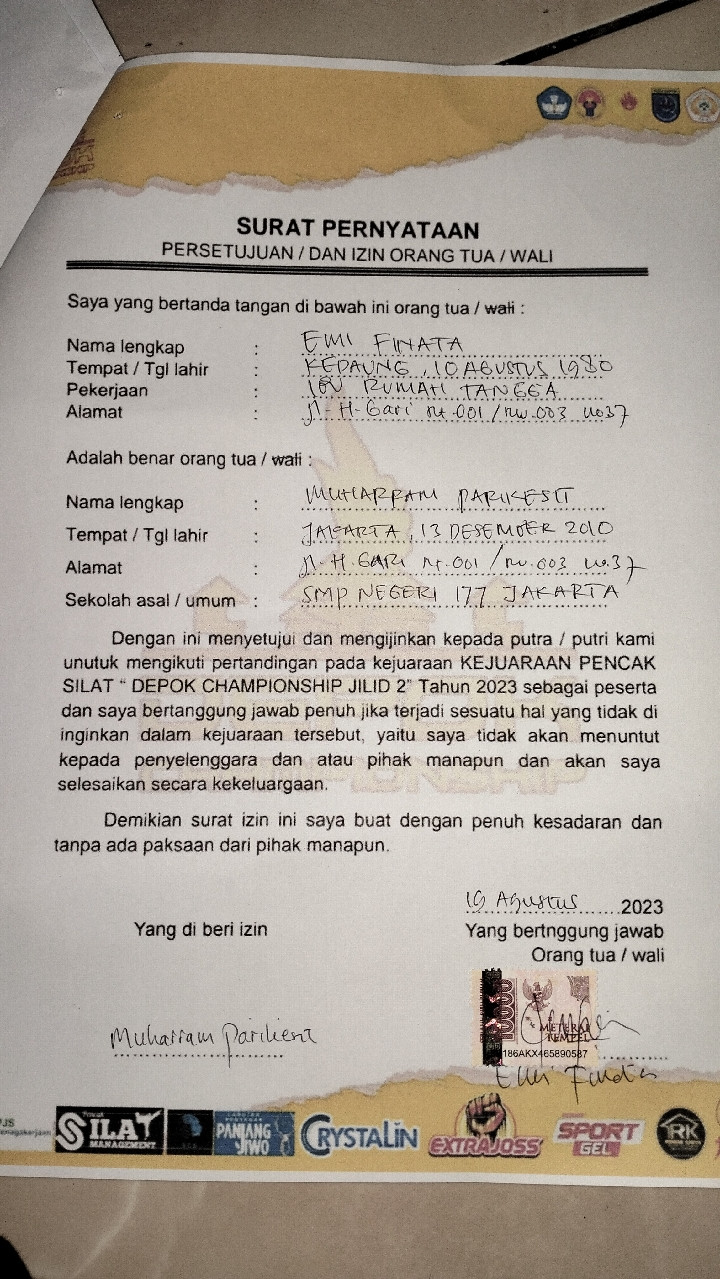 SURAT PERNYATAAN
PERSETUJUAN / DAN IZIN ORANG TUA / WALI
Saya yang bertanda tangan di bawah ini orang tua / wali :
Nama lengkap : EMI FINATA
Tempat / Tgl lahir : KEDAUNG, 10 AGUSTUS 1980
Pekerjaan : IBU RUMAH TANGGA
Alamat : Jl-H-Gari rt.001 / rw.003 no37
Adalah benar orang tua / wali :
Nama lengkap : MUHARRAM PARIKESIT
Tempat / Tgl lahir : JAKARTA, 13 DESEMBER 2010
Alamat : Jl-H.GARI rt.001 / rw.003 no.37
Sekolah asal / umum : SMP NEGERI 177 JAKARTA
Dengan ini menyetujui dan mengijinkan kepada putra / putri kami
unutuk mengikuti pertandingan pada kejuaraan KEJUARAAN PENCAK
SILAT “ DEPOK CHAMPIONSHIP JILID 2” Tahun 2023 sebagai peserta
dan saya bertanggung jawab penuh jika terjadi sesuatu hal yang tidak di
inginkan dalam kejuaraan tersebut, yaitu saya tidak akan menuntut
kepada penyelenggara dan atau pihak manapun dan akan saya
selesaikan secara kekeluargaan.
Demikian surat izin ini saya buat dengan penuh kesadaran dan
tanpa ada paksaan dari pihak manapun.
Agustus 2023
Yang di beri izin
Yang bertnggung jawab
Orang tua / wali
10000
METERAI
TEMPEL
186AKX465890587
Muharram
Emi Finata
SILAT
MANAGEMENT
PANJANG
JIWO
CRYSTALIN
EXTRAJOSS
SPORT
GEL
RK